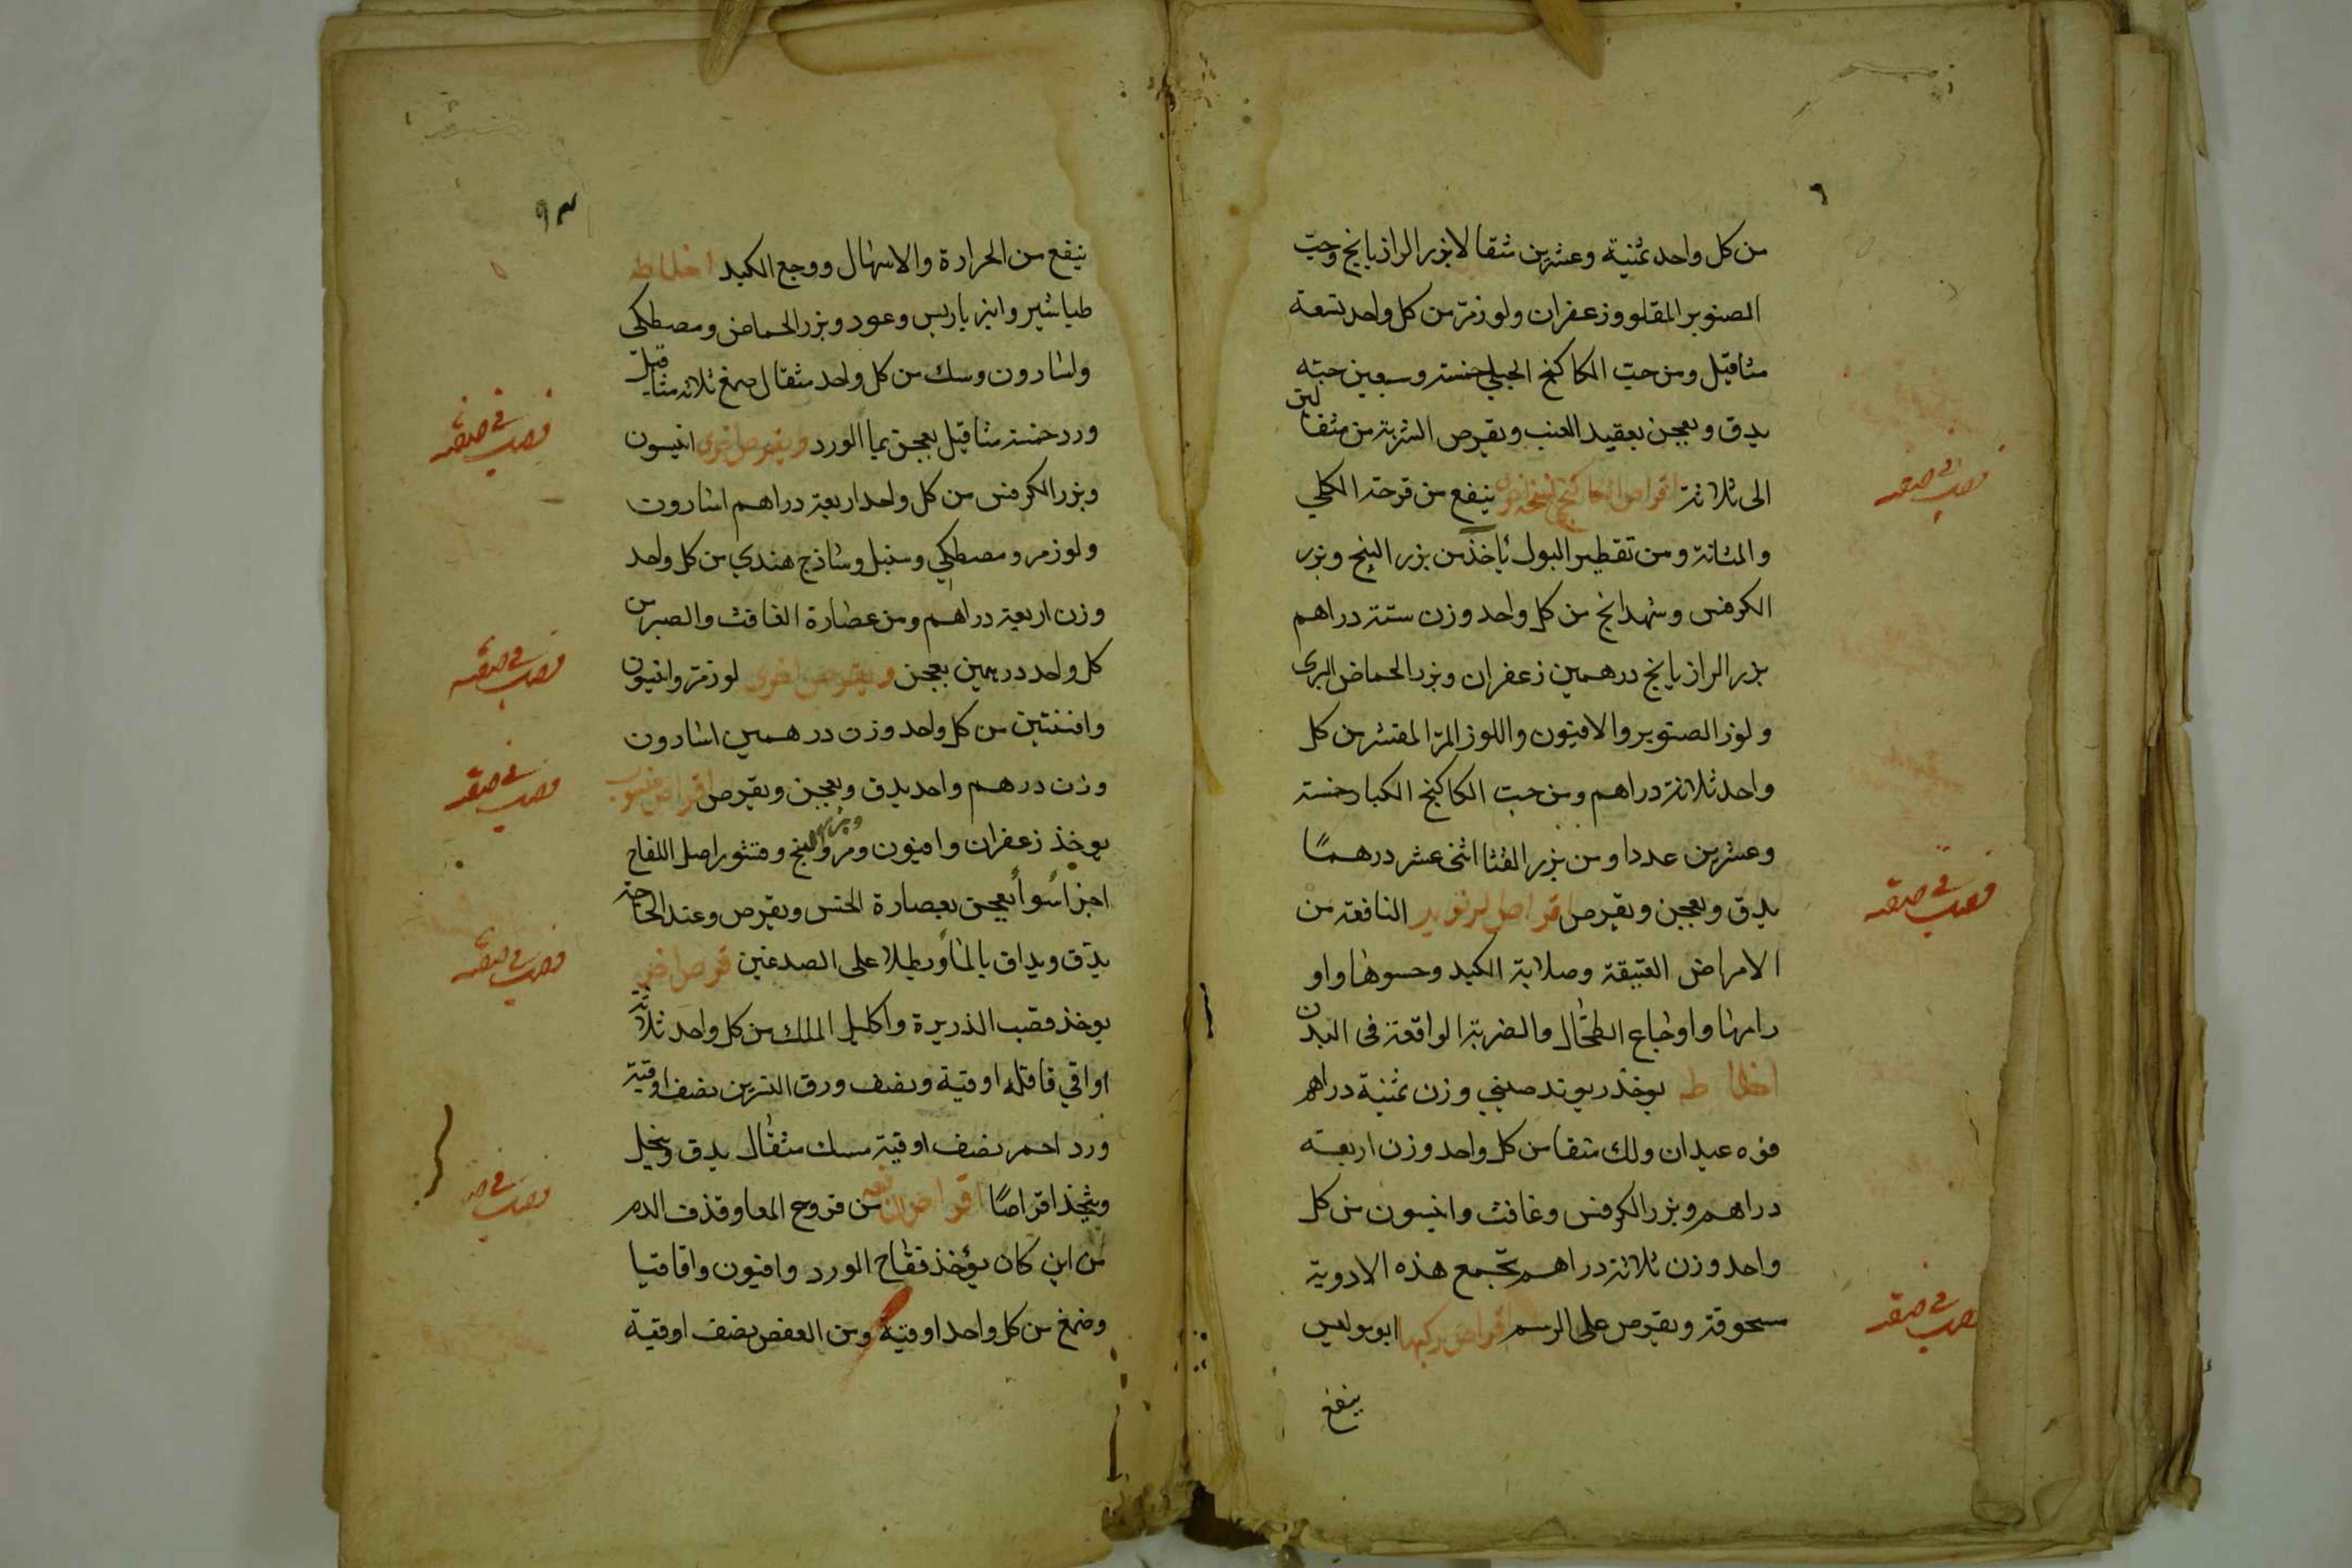 من كل واحد ثمنية وعشرين مثقالا بزر الرازيانج وحبّ
الصنوبر المقلو وزعفران ولوز مرّ من كل واحد تسعة
مثاقيل ومن حبّ الكاكنج الجبلي خمسة وسبعين حبّه
يدق ويعجن بعقيد العنب ويقرص الشربة من مثقالين
الى ثلاثة اقراص الكاكنج ينفع من قرحة الكلي
والمثانة ومن تقطير البول ياخذ من بزر البنج وبزر
الكرفس وشهدانج من كل واحد وزن ستة دراهم
بزر الرازيانج درهمين زعفران وبزر الحماض البرى
ولوز الصنوبر والافيون واللوز المرّ المقشر من كل
واحد ثلاثة دراهم ومن حب الكاكنج الكبار خمسة
وعشرين عددا ومن بزر القثا اثنى عشر درهمًا
يدق ويعجن ويقرص اقراص النافعة من
الامراض العتيقة وصلابة الكبد وجسوها واو
رامها واوجاع الطحال والضربة الواقعة فى البدن
اخلاط يوخذ ريوند صيني وزن ثمنية دراهم
فوه عيدان ولك منقا من كل واحد وزن اربعة
دراهم وبزر الكرفس وغافث وانيسون من كل
واحد وزن ثلاثة دراهم تجمع هذه الادوية
مسحوقة ويقرص على الرسم اقراص ركبها ابوبوليس
ينفع
٩٣
ينفع من الحرارة والاسهال ووجع الكبد اخلاط
طباشير وانبر باريس وعود وبزر الحماض ومصطكى
واسارون وسك من كل واحد مثقال صمغ ثلاثة مثاقيل
ورد خمسة مثاقيل يعجن بما الورد ويقرص اخرى انيسون
وبزر الكرفس من كل واحد اربعة دراهم اسارون
ولوز مر ومصطكي وسنبل وساذج هندي من كل واحد
وزن اربعة دراهم ومن عصارة الغافث والصبر من
كل واحد درهمين يعجن ويقرص اخرى لوز مرّ وانيسون
وافسنتين من كل واحد وزن درهمين اسارون
وزن درهم واحد يدق ويعجن ويقرص اقراص
يوخذ زعفران وافيون ومر وبزر البنج وقشور اصل اللفاح
اجزا سوا يعجن بعصارة الخس ويقرص وعند الحاجة
يدق ويداف بالماء ويطلا على الصدغين قرص اخر
يوخذ قصب الذريرة واكليل الملك من كل واحد ثلاثة
اواقي قاقله اوقية ونصف ورق النسرين نصف اوقية
ورد احمر نصف اوقية مسك مثقال يدق وينخل
ويتخذ اقراصًا اقراص من قروح المعا وقذف الدم
من اين كان يؤخذ فقاح الورد وافيون واقاقيا
وصمغ من كل واحد اوقية ومن العفص نصف اوقية